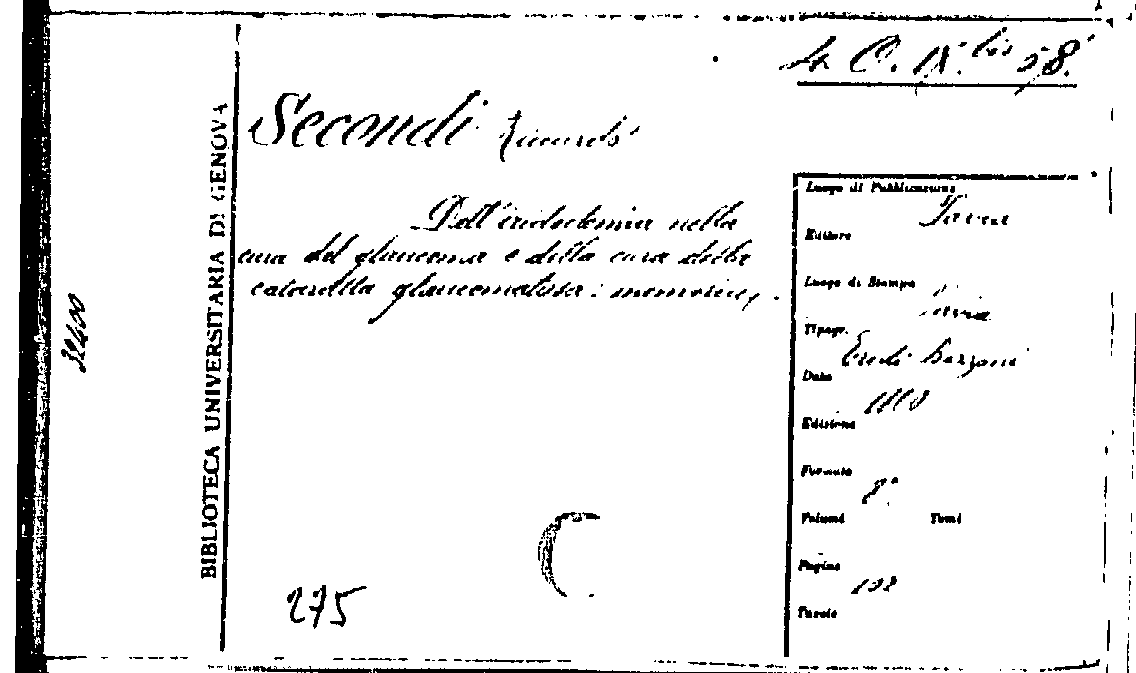 4. C. IX. bis 58.
Secondi Riccardo
Dell'iridectomia nella
cura del glaucoma e della cura della
cataratta glaucomatosa: memoria,
BIBLIOTECA UNIVERSITARIA DI GENOVA
32400
275
Luogo di Pubblicazione
Pavia
Editore
Luogo di Stampa
Pavia
Tipogr.
Eredi Bizzoni
Data
Edizione
Formato
8°
Volumi Tomi
Pagine
Tavole